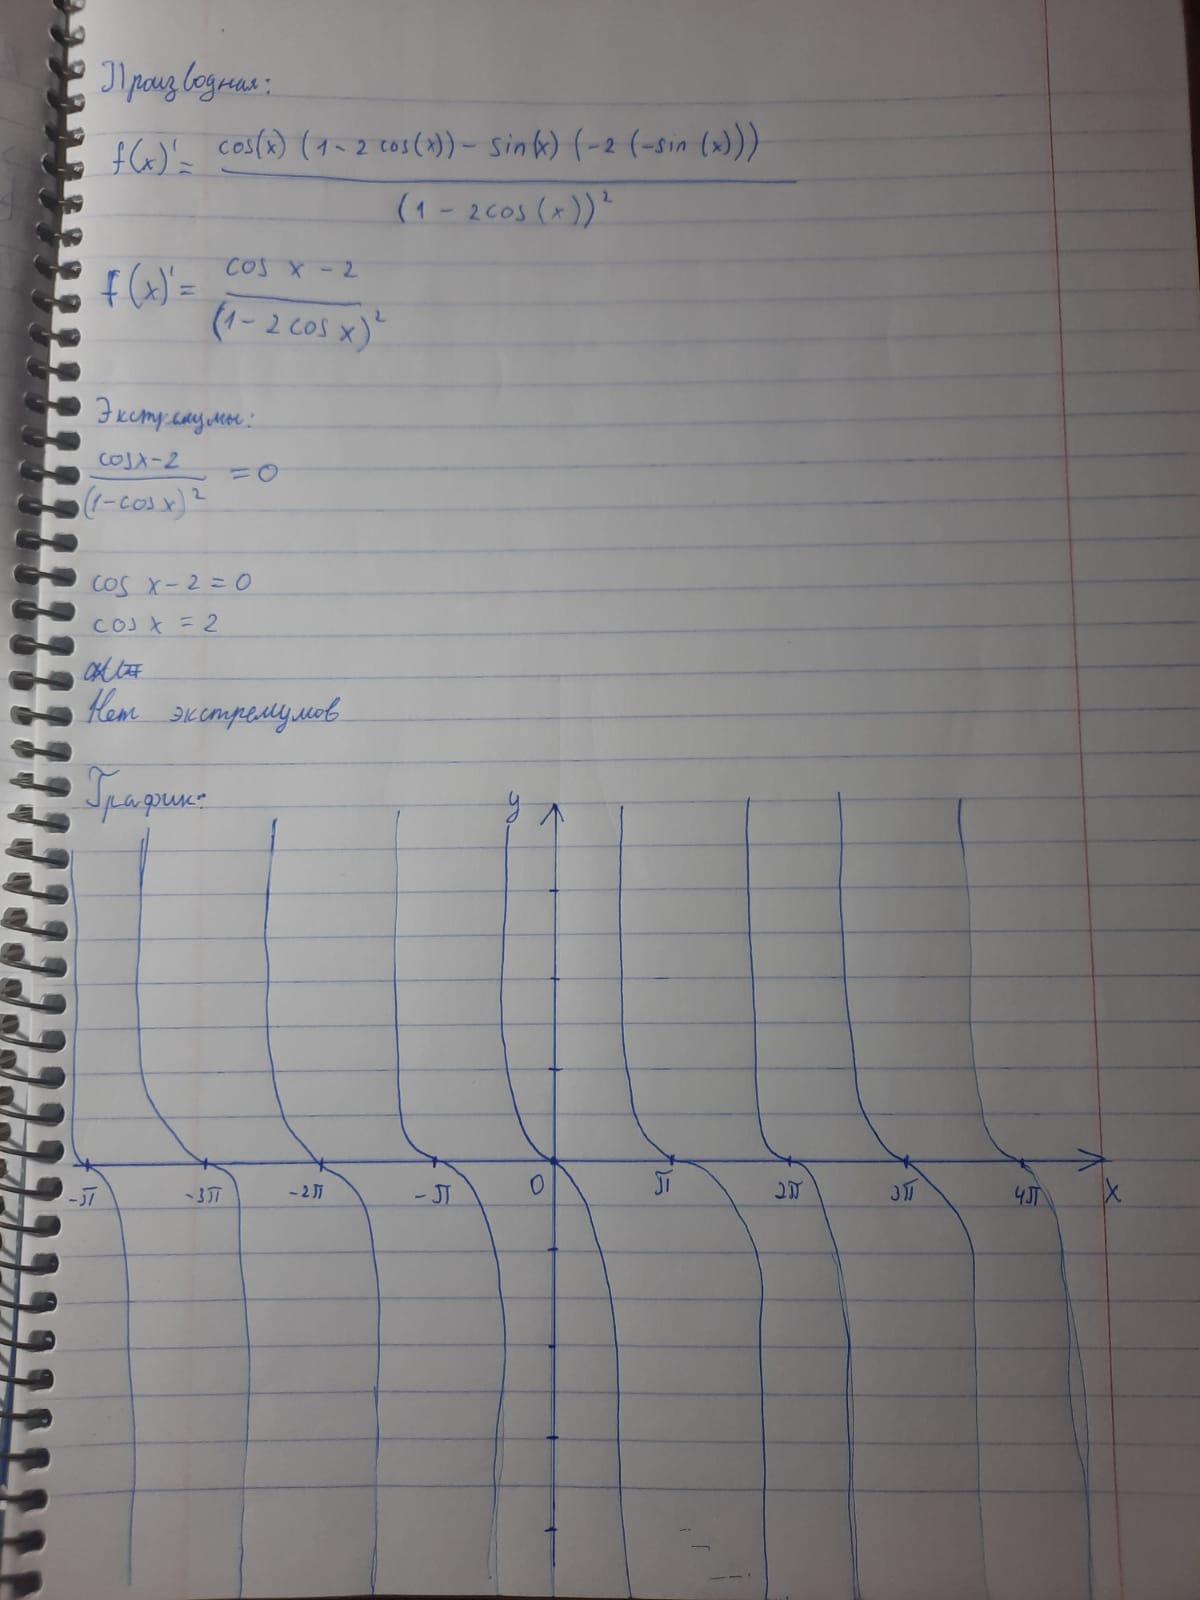 Производная:
f(x)' = cos(x) (1 - 2 cos(x)) - sin(x) (-2 (-sin (x)))
(1 - 2cos(x))²
f(x)' = cos x - 2
(1 - 2 cos x)²
Экстремумы:
cosx-2 = 0
(1-cosx)²
cos x - 2 = 0
cos x = 2
Нет экстремумов
График:
y
-π -3π -2π -π 0 π 2π 3π 4π x